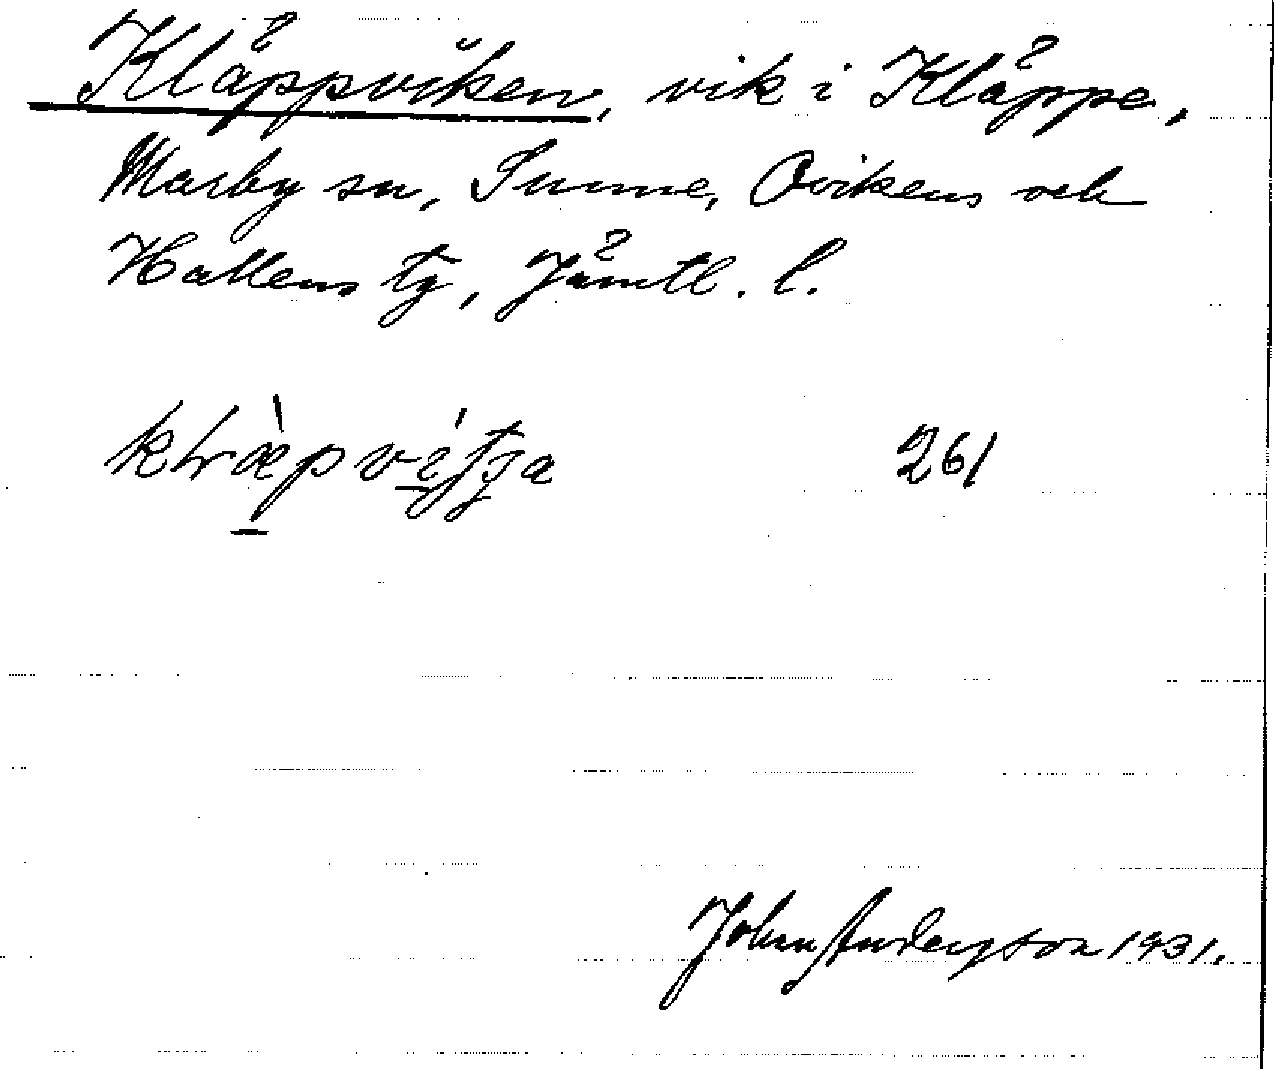 Kläppviken, vik i Kläppe,
Marby sn, Sunne, Ovikens och
Hallens tg, Jämtl. l.
261
John Andersson 1931.